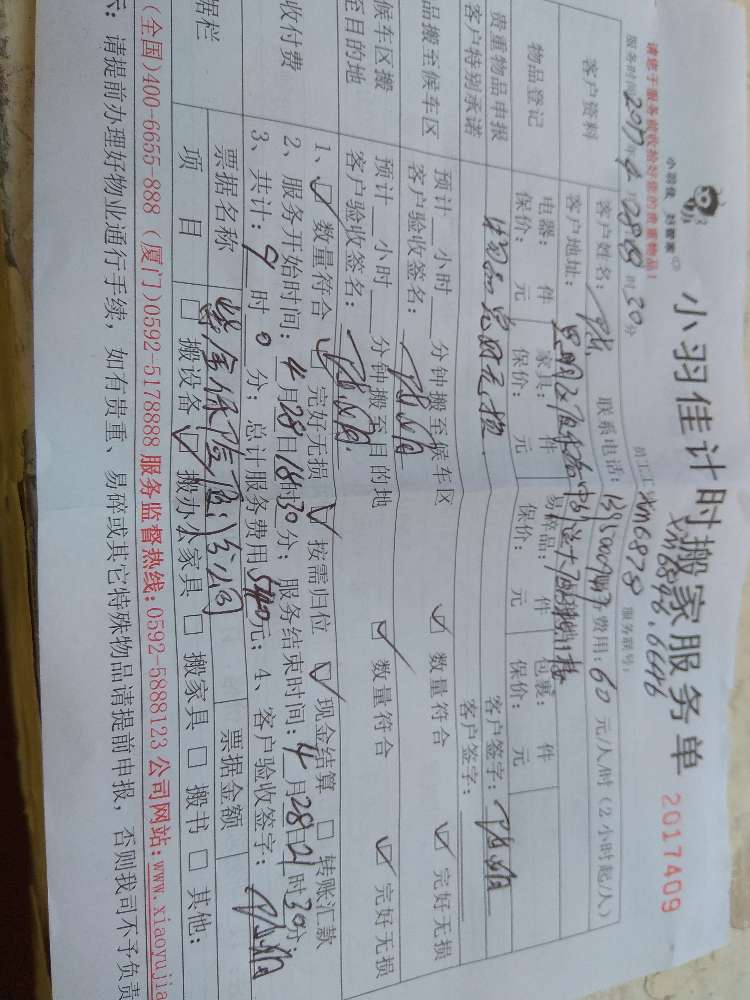 小羽佳 好管家
小羽佳计时搬家服务单
2017409
请您于服务前收拾好您的贵重物品!
员工工 XM6878 服务联号:
XM6848.6646
服务时间 2017年4月28日18时30分
客户资料
客户姓名: 联系电话: 费用:60元/人/时(2小时起/人)
客户地址:
物品登记
电器: 件 家具: 件 易碎品: 件 包裹: 件
保价: 元 保价: 元 保价: 元 保价: 元
贵重物品申报 物品完好无损 客户签字:
客户特别承诺 客户签字:
品搬至候车区 预计__小时__分钟搬至候车区 ☑ 数量符合 ☑ 完好无损
客户验收签名:
候车区搬至目的地 预计__小时__分钟搬至目的地 ☑ 数量符合 ☑ 完好无损
客户验收签名:
收付费
1、☑ 数量符合 ☑ 完好无损 ☑ 按需归位 ☑ 现金结算 □ 转账汇款
2、服务开始时间:4月28日18时30分;服务结束时间:4月28日21时30分
3、共计:9时0分;总计服务费用:540元;4、客户验收签字:
据栏
票据名称 票据金额
项目 □ 搬设备 ☑ 搬办公家具 □ 搬家具 □ 搬书 □ 其他:
(全国)400-6655-888 (厦门)0592-5178888 服务监督热线:0592-5888123 公司网站:www.xiaoyujia
示:请提前办理好物业通行手续,如有贵重、易碎或其它特殊物品请提前申报,否则我司不予负责